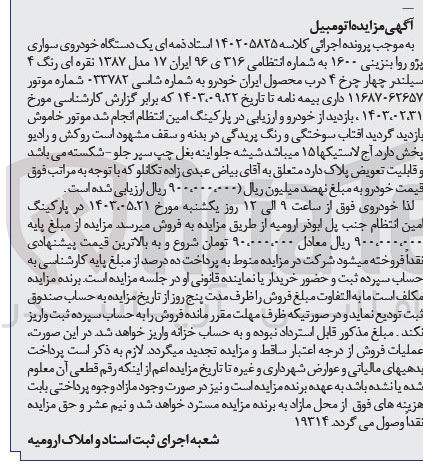 آگهی مزایده اتومبیل
به موجب پرونده اجرائی کلاسه ۱۴۰۲۰۵۸۲۵ استاد ذمه ای یک دستگاه خودروی سواری
پژو روا بنزینی ۱۶۰۰ به شماره انتظامی ۳۱۶ ی ۹۶ ایران ۱۷ مدل ۱۳۸۷ نقره ای رنگ ۴
سیلندر چهار چرخ ۴ درب محصول ایران خودرو به شماره شاسی ۰۳۳۷۸۲ شماره موتور
۱۱۶۸۷۰۶۲۶۵۷ داری بیمه نامه تا تاریخ ۱۴۰۳.۰۹.۲۲ که برابر گزارش کارشناسی مورخ
۱۴۰۳.۰۲.۳۱ ، بازدید از خودرو و ارزیابی در پارکینگ امین انتظام انجام شد موتور خاموش
بازدید گردید افتاب سوختگی و رنگ پریدگی در بدنه و سقف مشهود است روکش و رادیو
پخش دارد. آج لاستیکها ۱۵ میباشد شیشه جلو اینه بغل چپ سپر جلو - شکسته می باشد
و قابلیت تعویض پلاک دارد متعلق به آقای بیاض عبدی زاده تکانلو که با توجه به مراتب فوق
قیمت خودرو به مبلغ نهصد میلیون ریال (۹۰۰,۰۰۰,۰۰۰ ریال ارزیابی شده است .
لذا خودروی فوق از ساعت ۹ الی ۱۲ روز یکشنبه مورخ ۱۴۰۳.۰۵.۲۱ در پارکینگ
امین انتظام جنب پل ابوذر ارومیه از طریق مزایده به فروش میرسد. مزایده از مبلغ پایه
۹۰۰,۰۰۰,۰۰۰ ریال معادل ۹۰,۰۰۰,۰۰۰ تومان شروع و به بالاترین قیمت پیشنهادی
نقدا فروخته میشود شرکت در مزایده منوط به پرداخت ده درصد از مبلغ پایه کارشناسی به
حساب سپرده ثبت و حضور خریدار یا نماینده قانونی او در جلسه مزایده است. برنده مزایده
مکلف است مابه التفاوت مبلغ فروش را ظرف مدت پنج روز از تاریخ مزایده به حساب صندوق
ثبت تودیع نماید و در صورتیکه ظرف مهلت مقرر مانده فروش را به حساب سپرده ثبت واریز
نکند . مبلغ مذکور قابل استرداد نبوده و به حساب خزانه واریز خواهد شد. در این صورت،
عملیات فروش از درجه اعتبار ساقط و مزایده تجدید میگردد. لازم به ذکر است پرداخت
بدهیهای مالیاتی و عوارض شهرداری و غیره تا تاریخ مزایده اعم از اینکه رقم قطعی آن معلوم
شده یا نشده باشد به عهده برنده مزایده است و نیز در صورت وجود مازاد وجوه پرداختی بابت
هزینه های فوق از محل مازاد به برنده مزایده مسترد خواهد شد و نیم عشر و حق مزایده
نقداً وصول می گردد. ۱۹۳۱۴
شعبه اجرای ثبت اسناد و املاک ارومیه